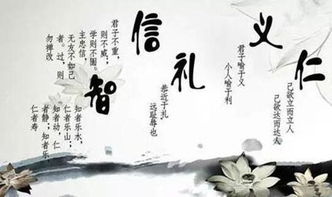 仁
己欲立而立人
己欲达而达人
义
君子喻于义
个人喻于利
礼
恭近于礼
远耻辱也
信
君子不重，
则不威；
学则不固。
主忠信，
无友不如己
者。过，则
勿惮改
智
知者乐水，
仁者乐山；
知者动，仁
者静；知者乐，
仁者寿